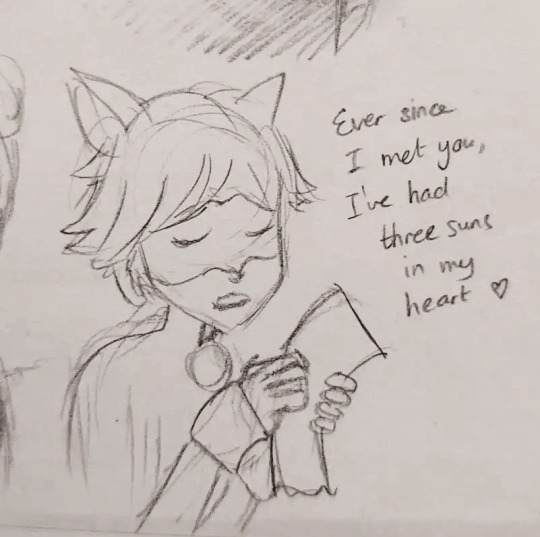 Ever since
I met you,
I've had
three suns
in my
heart ♡